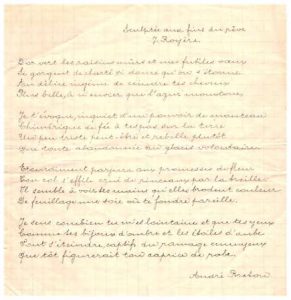 Sculptée aux fins du rêve
J. Royère.
D'or vert les raisins mûrs et mes futiles vœux
Se gorgent de clarté si dame qu'on s'étonne
Au délice ingénu de ceindre tes cheveux
Plus belle, à n'envier que l'azur monotone.
Je t'évoque, inquiet d'un pouvoir de manteau
Chimérique de fée à tes pas sur la terre
Un peu triste peut-être et rebelle plutôt
Que toute abandonnée au glacis volontaire.
Étourdiment parjure aux promesses de fleur
Ton col s'effile orné de rinceaux par la treille
Il semble à voir tes mains qu'elles brodent couleur
De feuillage une soie où te fondre pareille.
Je sens combien tu m'es lointaine et que tes yeux
Comme tes bijoux d'ambre et les étoiles d'aube
Vont s'éteindre, captifs du ramage ennuyeux
Que tôt figurerait ton caprice de robe.
André Breton